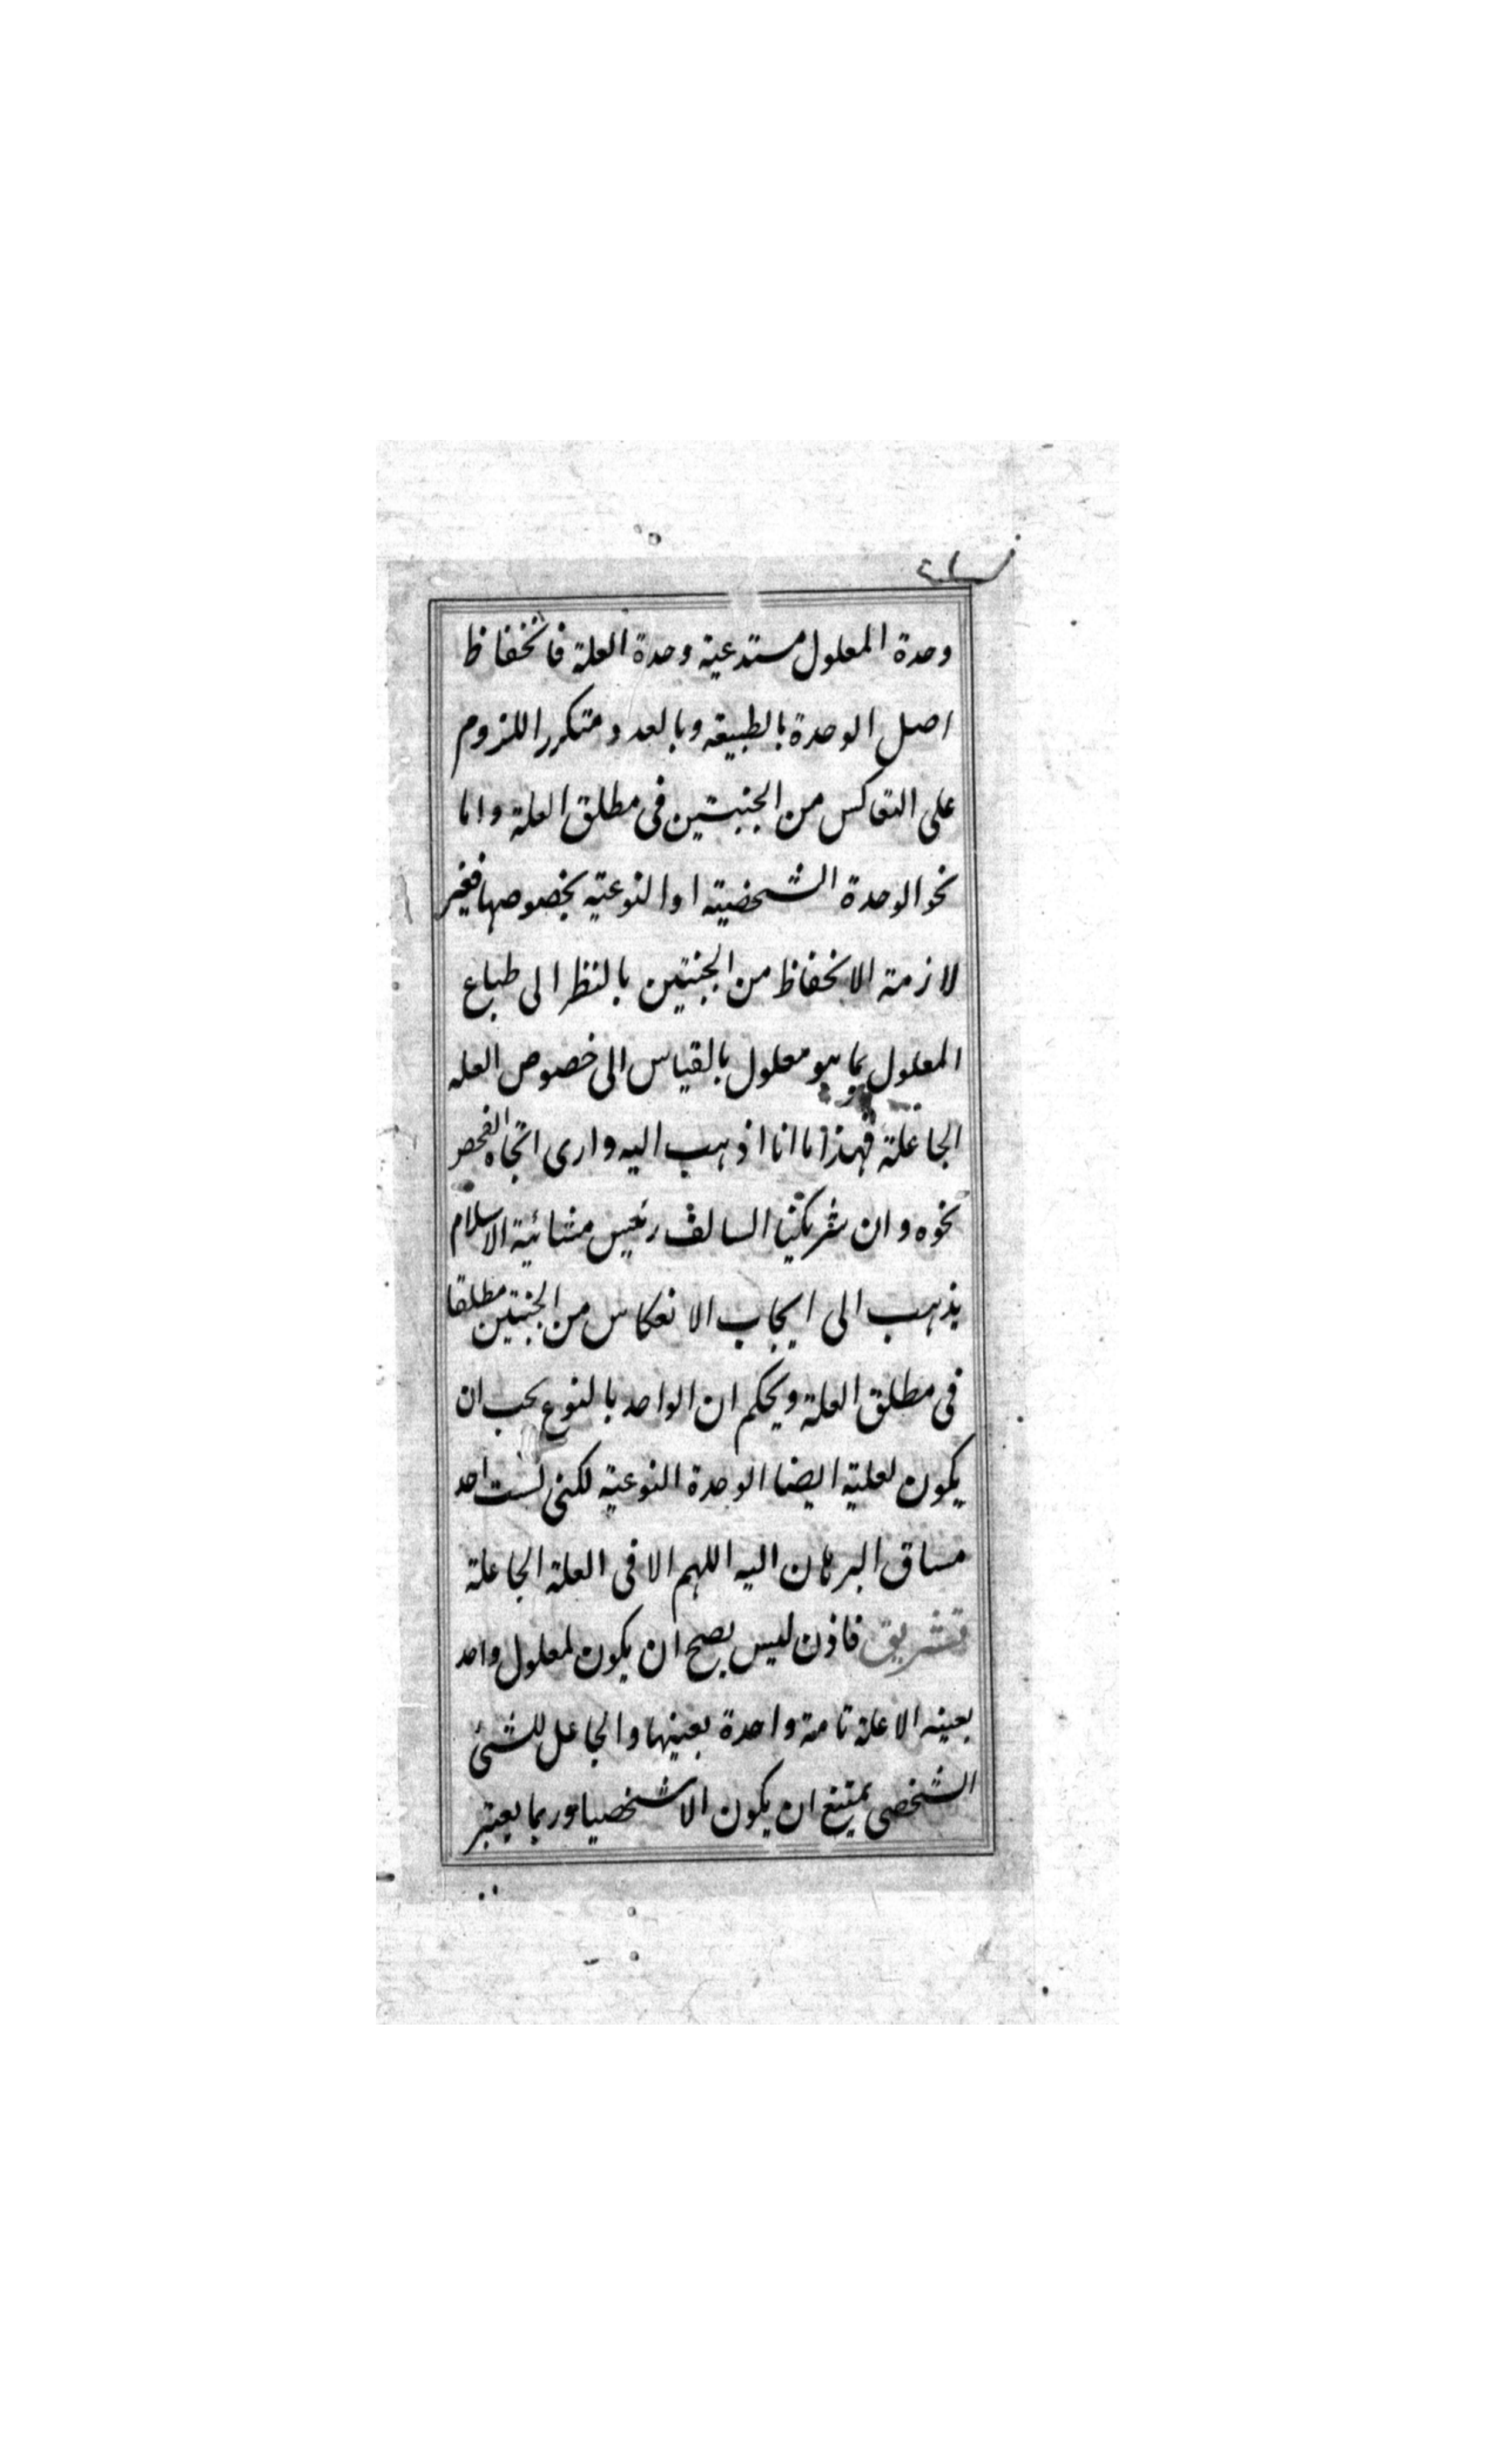 وحدة المعلول مستدعية وحدة العلة فانحفاظ
اصل الوحدة بالطبيعة وبالعدد متكرر اللزوم
على التعاكس من الجنبتين فى مطلق العلة واما
نحو الوحدة الشخصية او النوعية بخصوصها فغير
لازمة الانحفاظ من الجنبتين بالنظر الى طباع
المعلول بما هو معلول بالقياس الى خصوص العله
الجاعلة فهذا ما انا اذهب اليه وارى اتجاه الفحص
نحوه وان شريكنا السالف رئيس مشائية الاسلام
يذهب الى ايجاب الانعكاس من الجنبتين مطلقا
فى مطلق العلة ويحكم ان الواحد بالنوع يجب ان
يكون لعلية ايضا الوحدة النوعية لكنى لست اجد
مساق البرهان اليه اللهم الا فى العلة الجاعلة
تشريق فاذن ليس يصح ان يكون لمعلول واحد
بعينه الا علة تامة واحدة بعينها والجاعل للشئ
الشخصى يمتنع ان يكون الا شخصيا وربما يعتبر